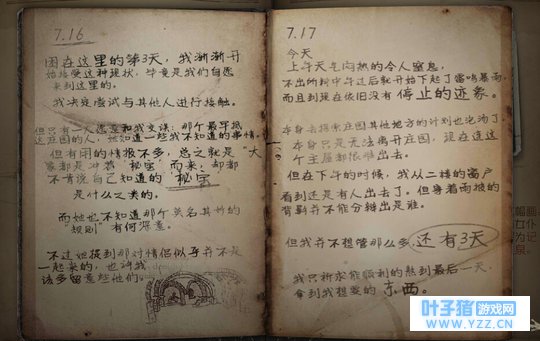 7.16
困在这里的第3天，我渐渐开
始接受这种现状，毕竟是我们自愿
来到这里的。
我决定尝试与其他人进行接触。
但只有一人愿意和我交谈：那个最早抵
达庄园的人，她知道一些我不知道的事情。
但有用的情报不多，总之就是"大
家都是冲着"秘宝"而来，却都
不肯说自己知道的"秘宝"
是什么之类的。
而她也不知道那个莫名其妙的
"规则"有何深意。
不过她提到那对情侣似乎并不是
一起来的，也许我
该多留意些他们。
7.17
今天
上午天气闷热的令人窒息，
不出所料中午过后就开始下起了雷鸣暴雨，
而且到现在依旧没有停止的迹象。
本身去探索庄园其他地方的计划也泡汤了
本身只是无法离开庄园，现在连这
个主屋都很难出去。
但在下午的时候，我从二楼的窗户
看到还是有人出去了。但穿着雨披的
背影并不能分辨出是谁。
但我并不想管那么多，还有3天
我只祈求能顺利的熬到最后一天，
拿到我想要的东西。
幅画
女仆
为记
泉。
叶子猪游戏网
www.YZZ.CN